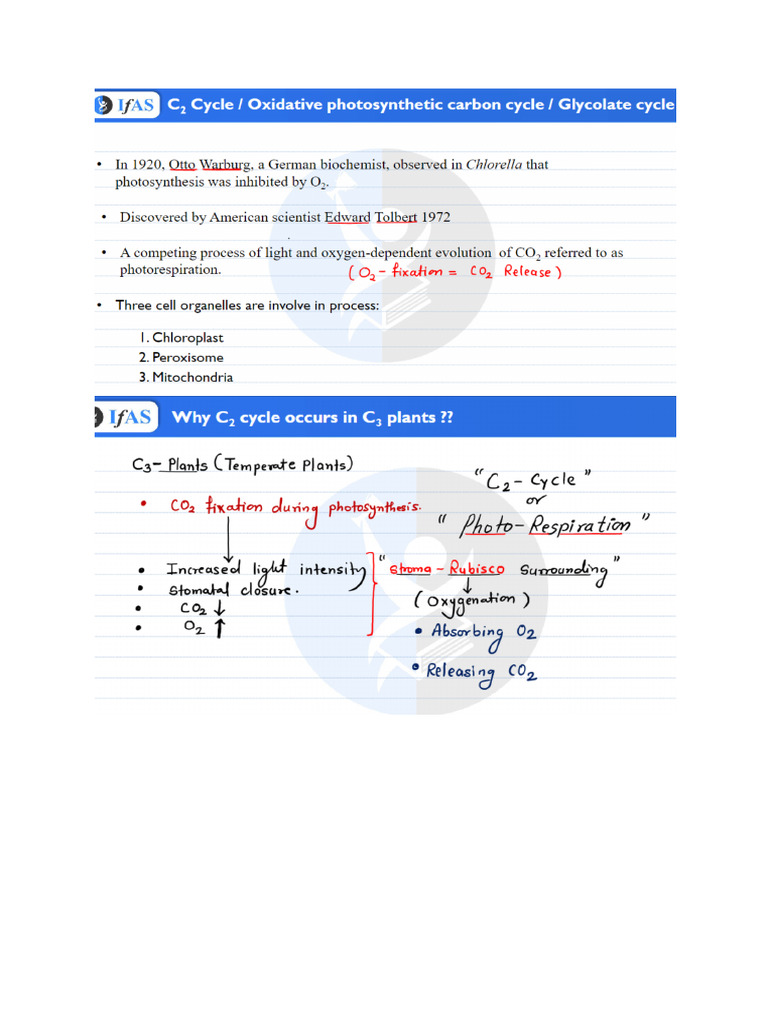 IfAS C₂ Cycle / Oxidative photosynthetic carbon cycle / Glycolate cycle
• In 1920, Otto Warburg, a German biochemist, observed in Chlorella that
photosynthesis was inhibited by O₂.
• Discovered by American scientist Edward Tolbert 1972
• A competing process of light and oxygen-dependent evolution of CO₂ referred to as
photorespiration.
(O₂ - fixation = CO₂ Release)
• Three cell organelles are involve in process:
1. Chloroplast
2. Peroxisome
3. Mitochondria
IfAS Why C₂ cycle occurs in C₃ plants ??
C₃- Plants (Temperate Plants)
• CO₂ fixation during photosynthesis.
• Increased light intensity
• Stomatal closure.
• CO₂ ↓
• O₂ ↑
"C₂ - Cycle"
or
"Photo-Respiration"
"Stroma - Rubisco Surrounding"
↓
(Oxygenation)
• Absorbing O₂
• Releasing CO₂